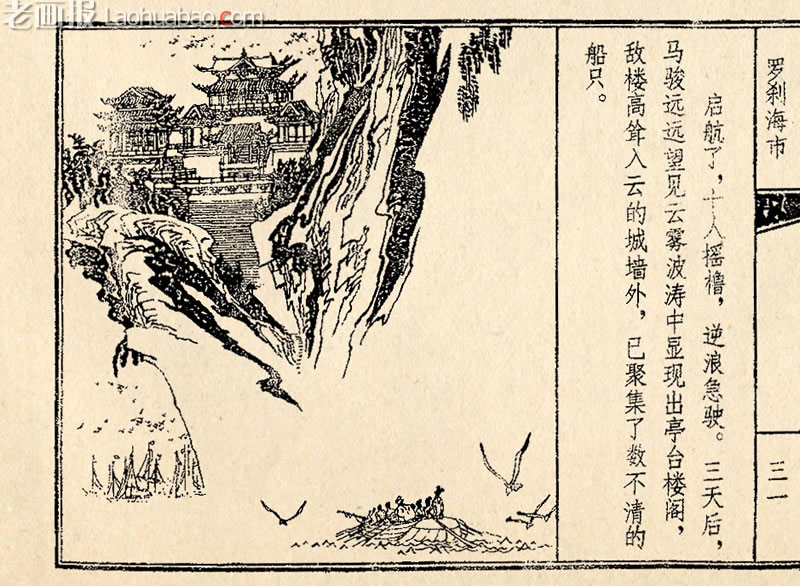 老画报
Laohuabao.com
启航了，十人摇橹，逆浪急驶。三天后，
马骏远远望见云雾波涛中显现出亭台楼阁，
敌楼高耸入云的城墙外，已聚集了数不清的
船只。
罗刹海市
三一